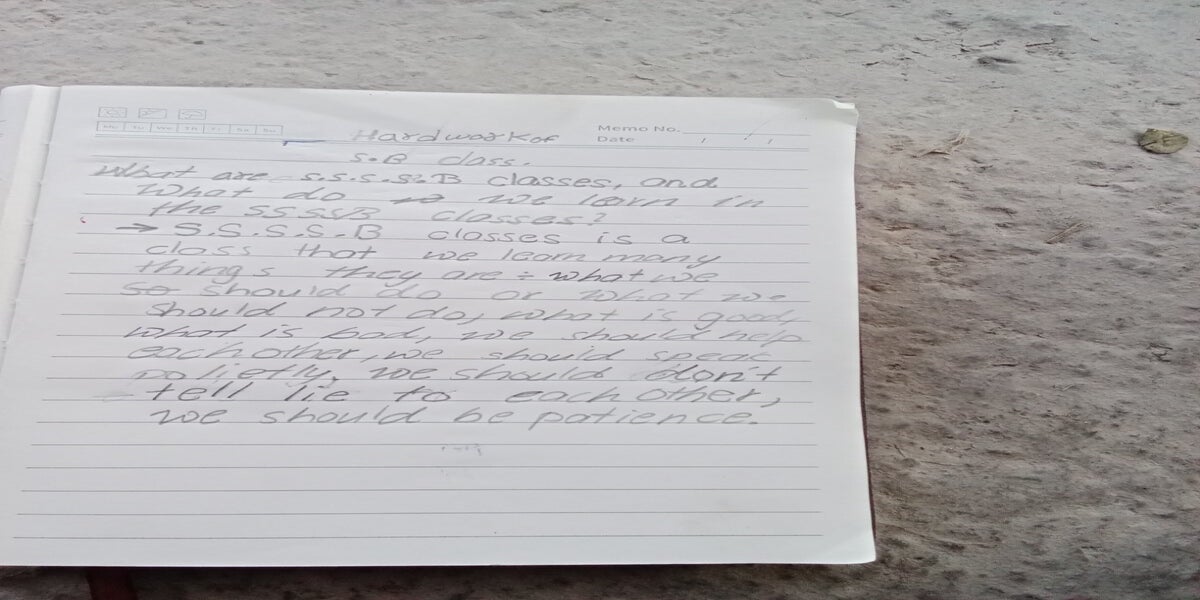 Mo Tu We Th Fr Sa Su
Memo No.
Date / /
Hardwork of
S.B class.
What are s.s.s.s.B classes, and
What do we learn in
the SSSSB classes?
→ S.S.S.S.B classes is a
class that we learn many
things they are ÷ what we
so should do or what we
should not do, what is good,
what is bad, we should help
each other, we should speak
polietly. We should don't
tell lie to each other,
we should be patience.